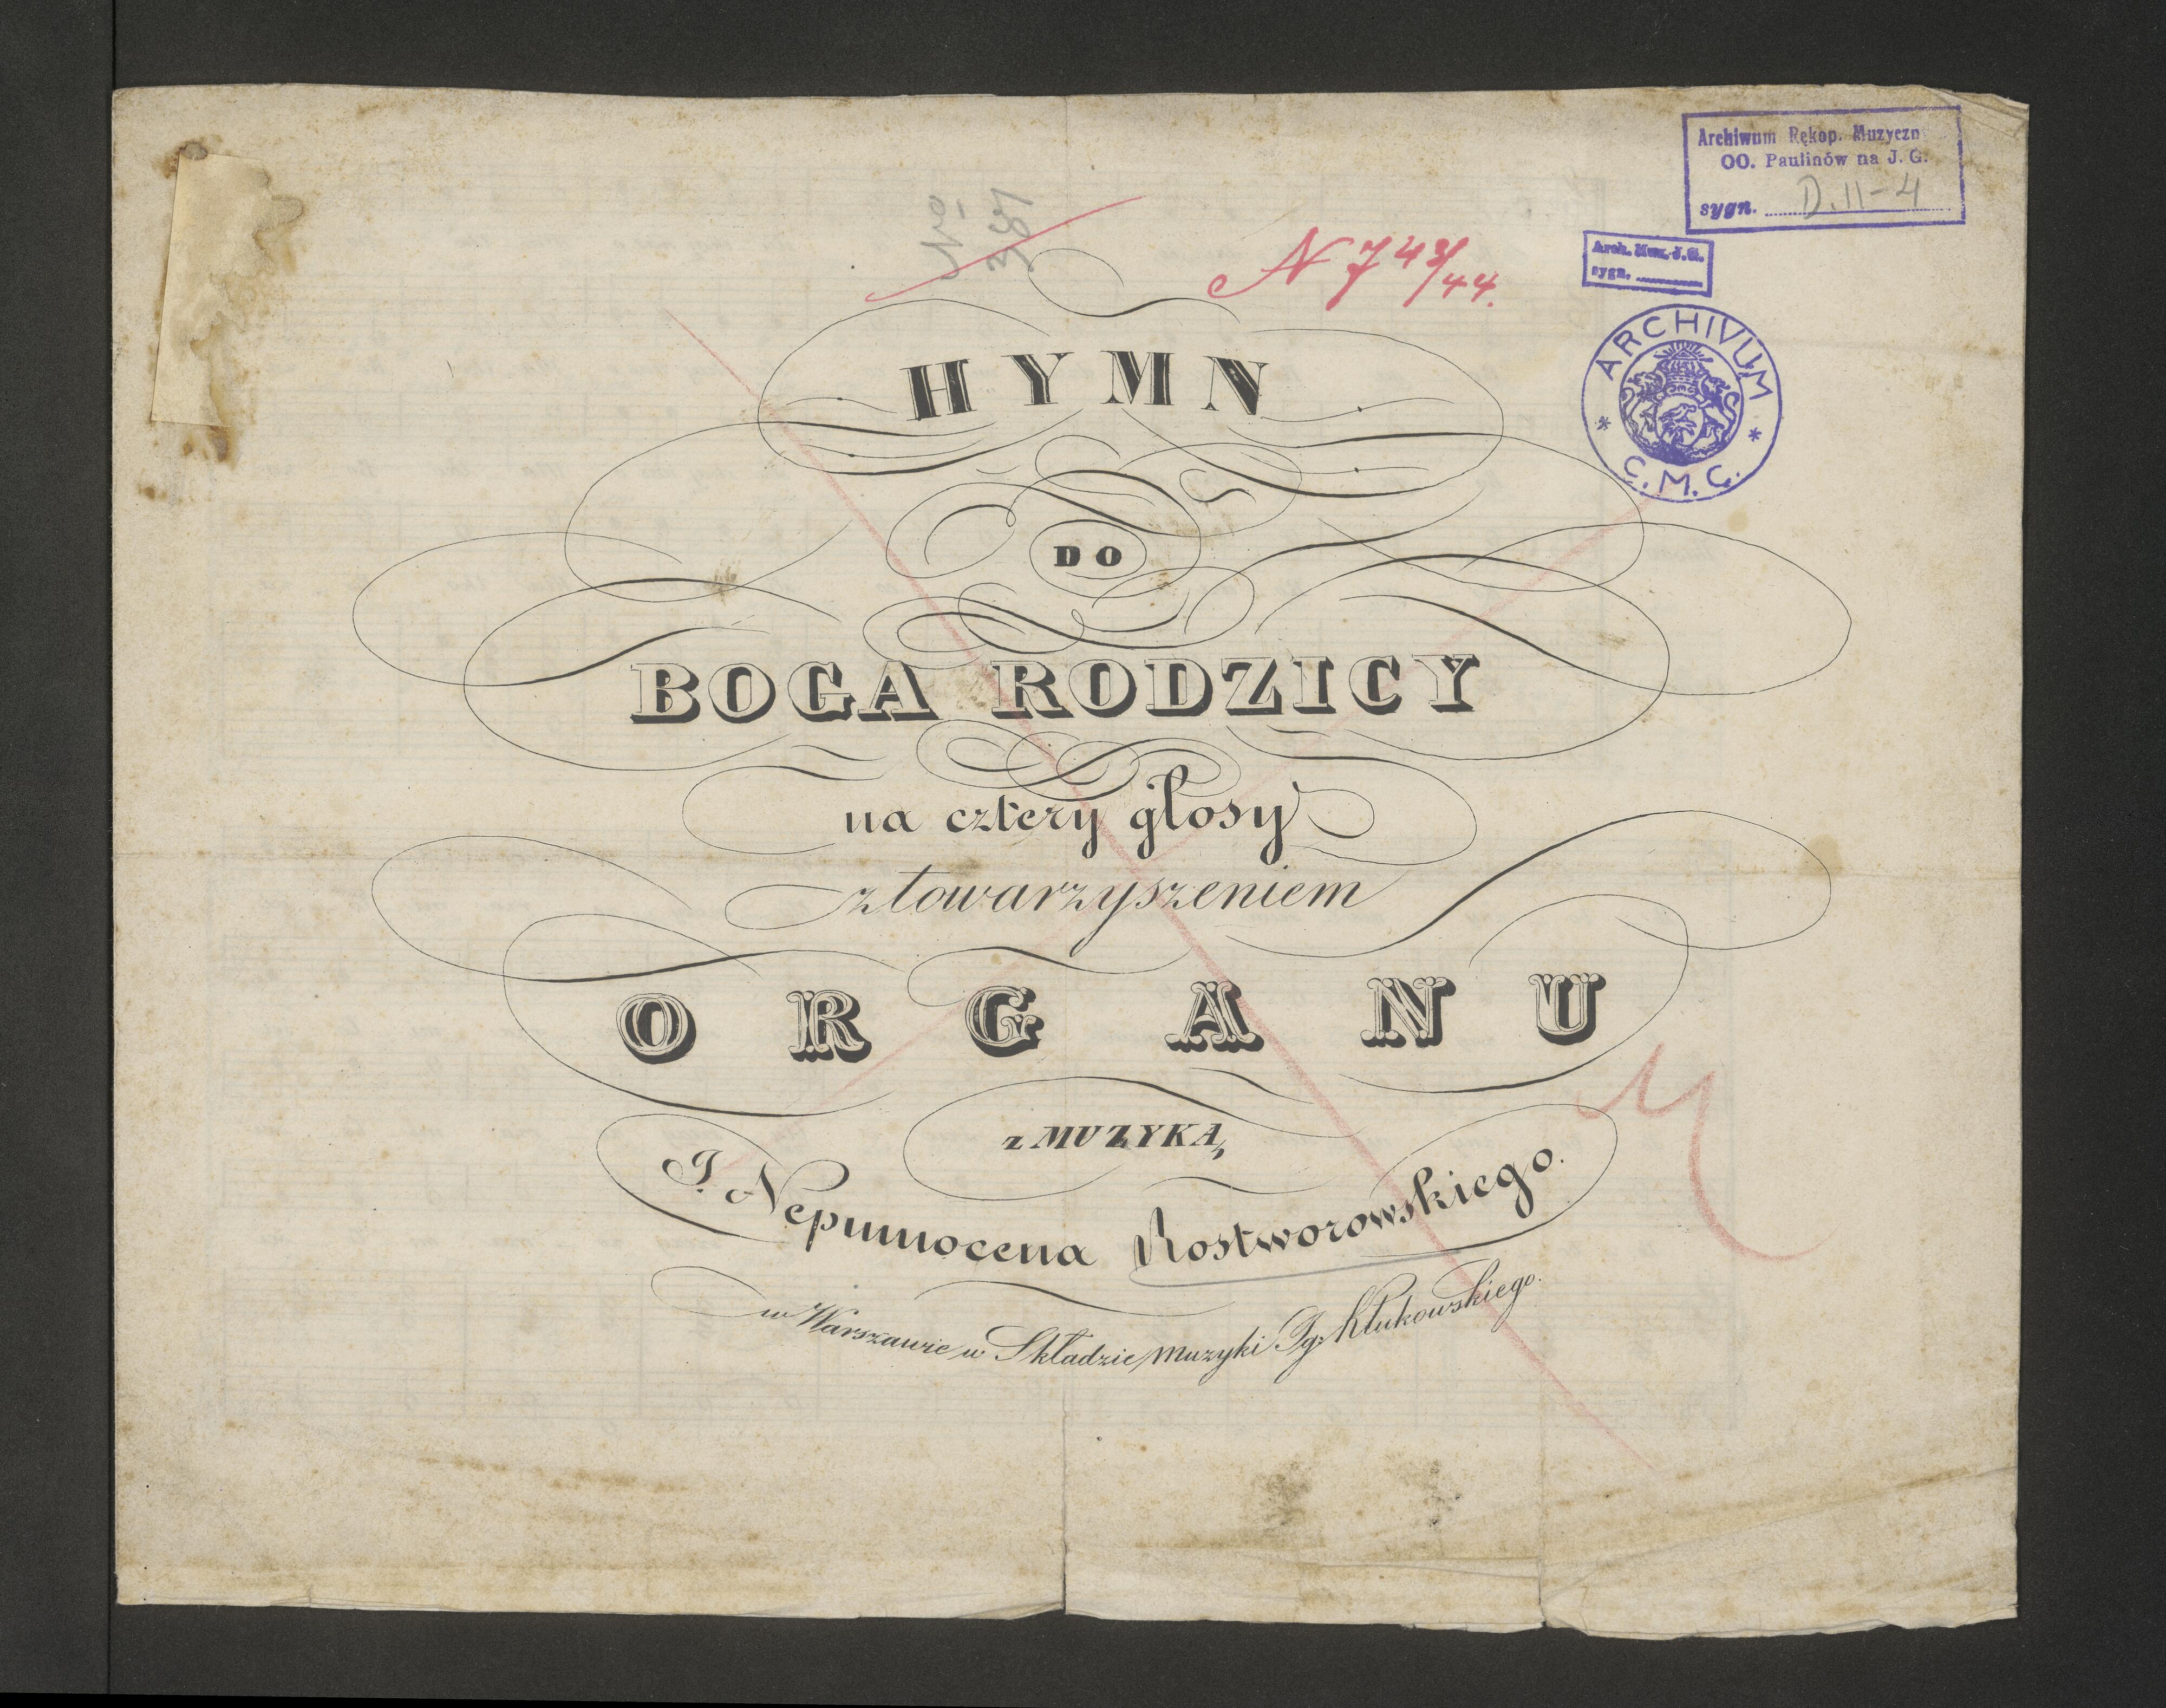 Archiwum Rękop. Muzyczn
OO. Paulinów na J. G.
sygn. D. II-4
Arch. Muz. J. G.
sygn.
ARCHIVUM
C. M. C.
HYMN
DO
BOGA RODZICY
na cztery głosy
z towarzyszeniem
ORGANU
z MUZYKĄ
J. Nepumocena Rostworowskiego.
w Warszawie w Składzie muzyki Ig: Klukowskiego.